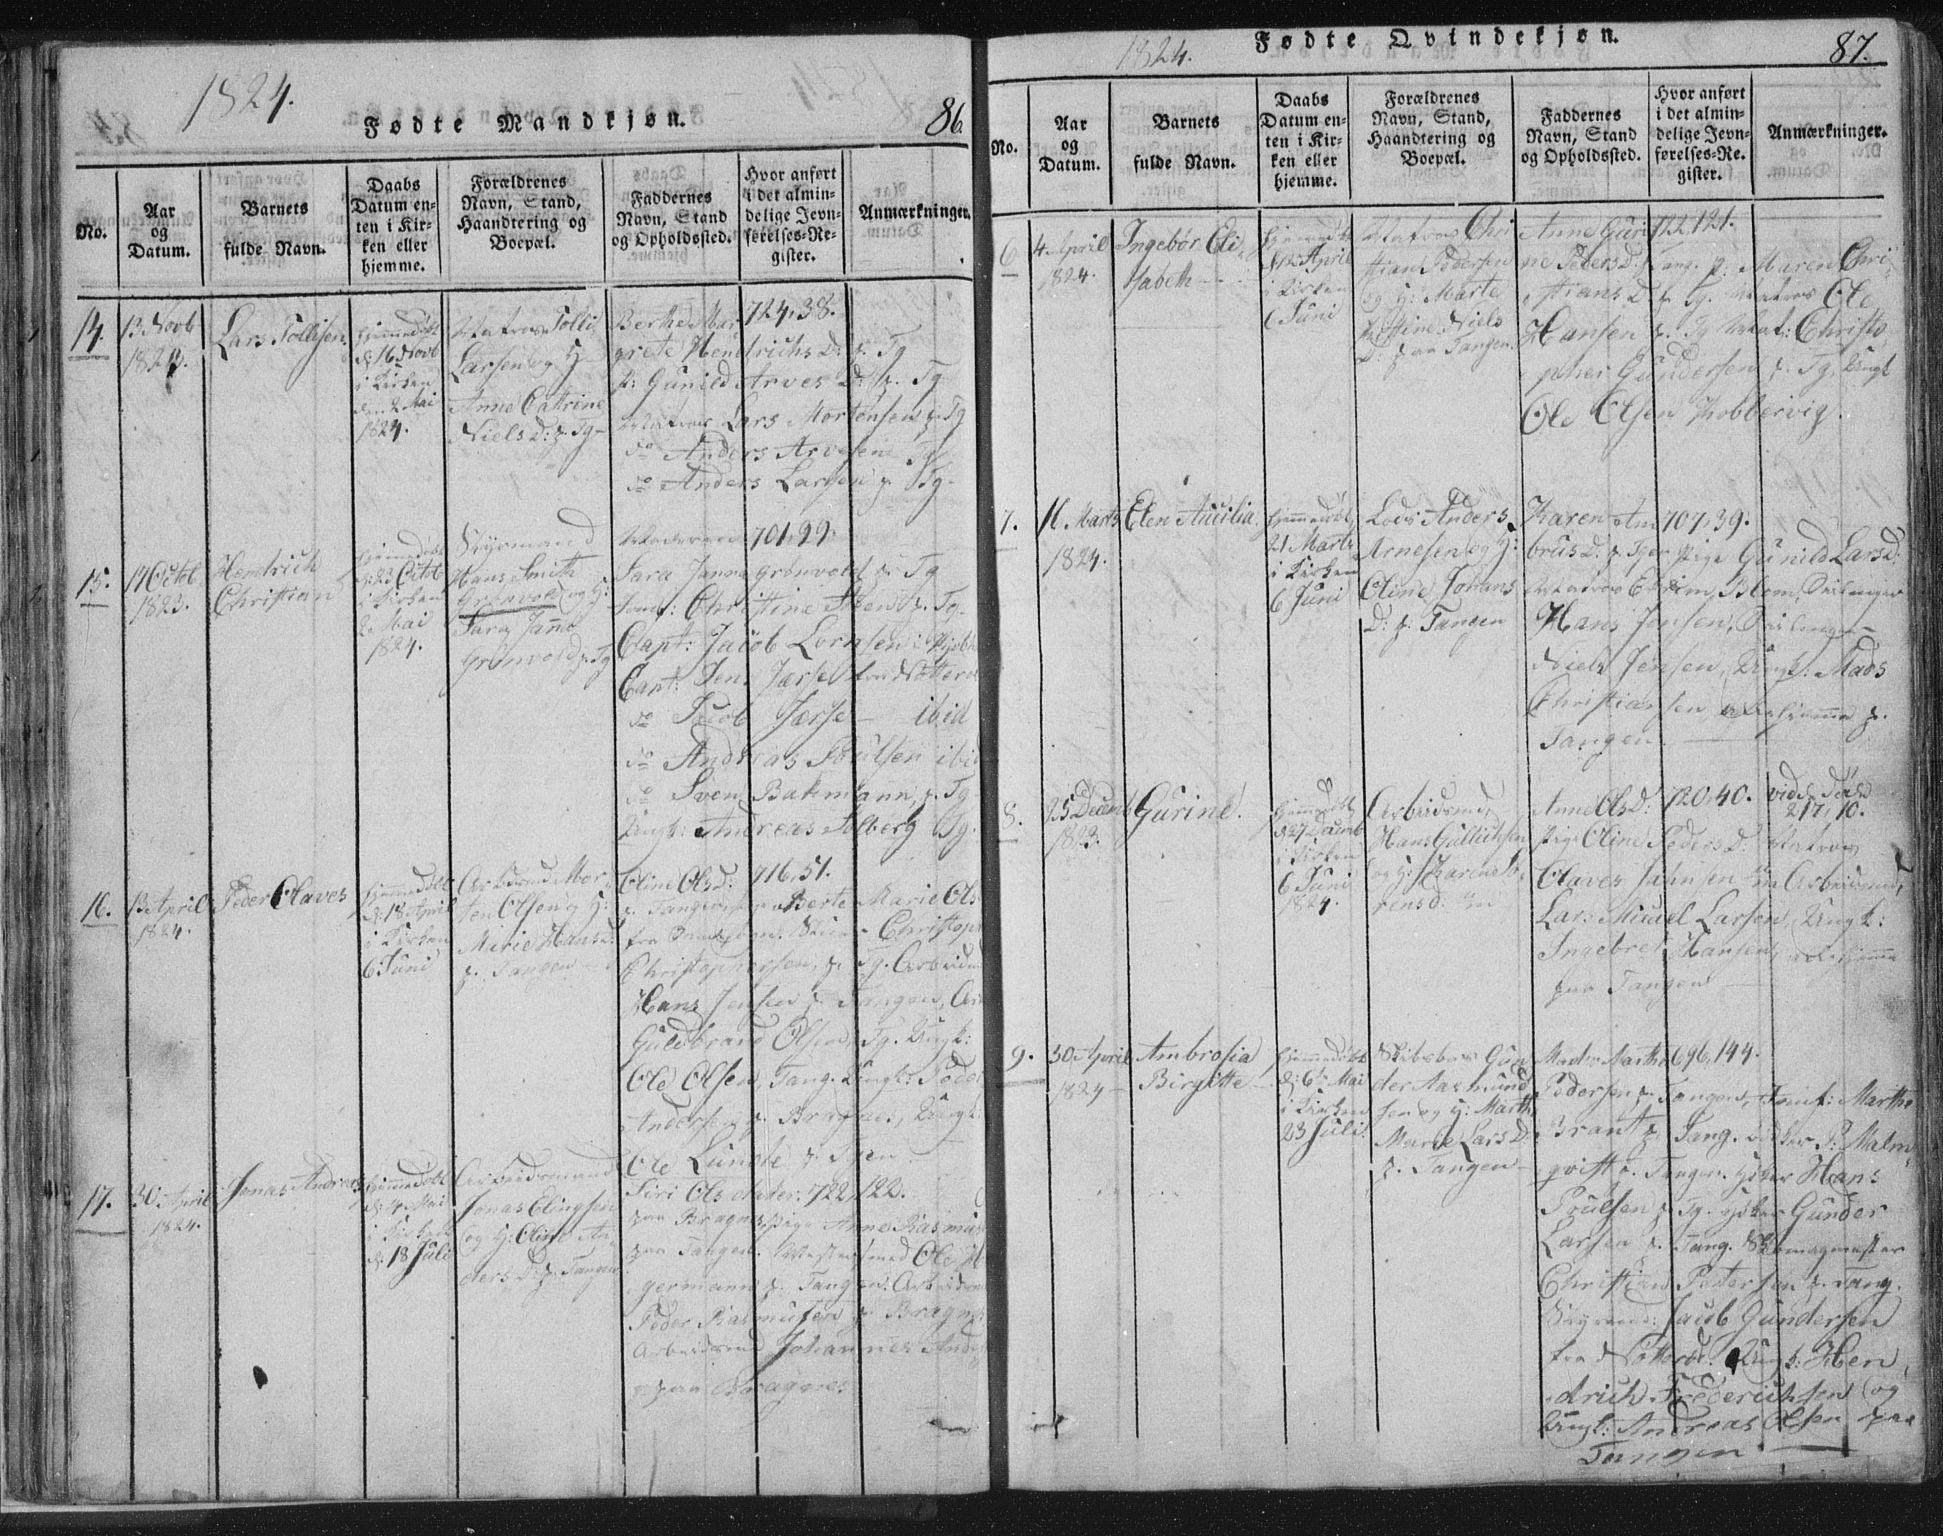 1824.
Fødte Mandkjøn.
86.
No.
Aar
og
Datum.
Barnets
fulde Navn.
Daabs
Datum en-
ten i Kir-
ken eller
hjemme.
Forældrenes
Navn, Stand,
Haandtering og
Boepæl.
Faddernes
Navn, Stand
og Opholdssted.
Hvor anført
i det almin-
delige Jevn-
førelses-Re-
gister.
Anmærkninger.
14.
13 Novb
1823.
Lars Tollisen
hjemmedøbt
d: 16 Novb
i Kirken
den 2 Mai
1824.
Matros Tolli
Larsen og H:
Anne Cattrine
Niels D: p. Tg
Berthe Mar
grete Hendrichs D: p. Tg
p: Gunild Arves D: p. Tg
Matros Lars Mortensen p. Tg
do Anders Arvesen Tg
do Anders Larsen p. Tg
724, 38.
15.
17 Octob
1823.
Hendrich
Christian
hjemmedøbt
d: 23 Octb
i Kirken
2 Mai
1824.
Styrmand
Hans Smith
Grønvold og H:
Sara Janna
Grønvold p. Tg
Madame
Sara Janna Grønvold p. Tg
Jomf: Christine p. Tg.
Capt: Jacob Lornsen i
Capt: Jens Jærse fra Nøtterø
do Jacob Jærse ibid
do Andreas Poulsen ibid
do Sven Bakmann p. Tg
Ungk: Andreas Solberg Tg.
701, 99.
16.
13 April
1824.
Peder Olaves
hjemmedøbt
d: 18 April
i Kirken
6 Juni
Arbeidsmd Mor-
ten Olsen og H:
Marie Hans D:
p. Tangen
Oline Ols D:
p. Tangen, Berte Marie Ols
fra Christoph
Christophersen, p. Tg. Arbeidsmd
Hans Jensen p. Tangen, Arb
Guldbrand Olsen, Tg. Ungk:
Ole Olsen, Tang. Ungk: Peder
Andersen p. Bragnes, Ungk:
Ole Lunde p. Tgen
716, 51.
17.
30. April
1824.
Jonas Andreas
hjemmedøbt
d: 4 Mai
i Kirken
d: 18 Juli
Arbeidsmand
Jonas Elingsen
og H: Oline An-
ders D: p. Tangen
Siri Ols datter.
paa Bragnes pige Anne Rasmus
paa Tangen. Ole
germann p. Tangen: Arbeidsmd
Peder Rasmusen p. Bragnes
Arbeidsmd Johannes Ander
paa Bragnes
722, 122.
1824.
Fødte Qvindekjøn.
87.
No.
Aar
og
Datum.
Barnets
fulde Navn.
Daabs
Datum en-
ten i Kir-
ken eller
hjemme.
Forældrenes
Navn, Stand,
Haandtering og
Boepæl.
Faddernes
Navn, Stand
og Opholdssted.
Hvor anført
i det almin-
delige Jevn-
førelses-Re.
gister.
Anmærkninger.
6
4. April
1824.
Ingebør Eli-
sabeth
hjemmedøbt
d: 12 April
i Kirken
6 Juni
Matros Chri
stian Pedersen
og H: Marte
Kistine Niels
D: paa Tangen.
Anne Guri
ne Peders D: Tang. p: Maren Chri-
stians D: p. Tg. Matros Ole
Hansen p. Tg Mat: Christo-
pher Gundersen p. Tg, Ungk
Ole Olsen Kobbervig.
722, 121.
7.
16. Marts
1824.
Elen Aucilia.
hjemmedøbt,
21 Marts
i Kirken
6 Juni
Lods Anders
Arnesen og H:
Oline Johans
D: p. Tangen
Karen Am
brus D: p. Tgen pige Gunild Lars D:
Matros Blom,
Hans Jensen,
Niels Jensen, Ungk: Mads
Christiansen, alle hjemme p.
Tangen.
707, 39.
8.
25 Decemb
1823.
Gurine.
hjemmedøbt
d: 27 Decemb
i Kirken
6 Juni
1824.
Arbeidsmd,
Hans Gullichsen
og H: Karen So-
rens D:
Anne Ols D:
pige Oline Peders D. Matros
Olaves Jahnsen Arbeidsmd,
Lars Micael Larsen, Ungk:
Ingebret Hansen, alle hjemme
paa Tangen
720, 40.
vid: Døde
217, 10.
9.
30 April
1824
Ambrosia
Birgitte
hjemmedøbt
d: 6te Mai
i Kirken
23 Juli
Gun
der Aasmund
sen og H: Marthe
Marie Lars D:
p. Tangen
Madm Marthe
Pedersen p. Tangen, Jomf: Marthe
Brant p. Tang. P: Malm-
qvist p. Tangen. Høker Hans
Poulsen p. Tg. Høker Gunder
Larsen p. Tang. Skomagmester
Christian Petersen p. Tang.
Styrmd: Jacob Gundersen
fra Nøtterø. Ungk: Hen-
drich Frederichsen og
Ungk: Andreas Olsen paa
Tangen
696, 144.